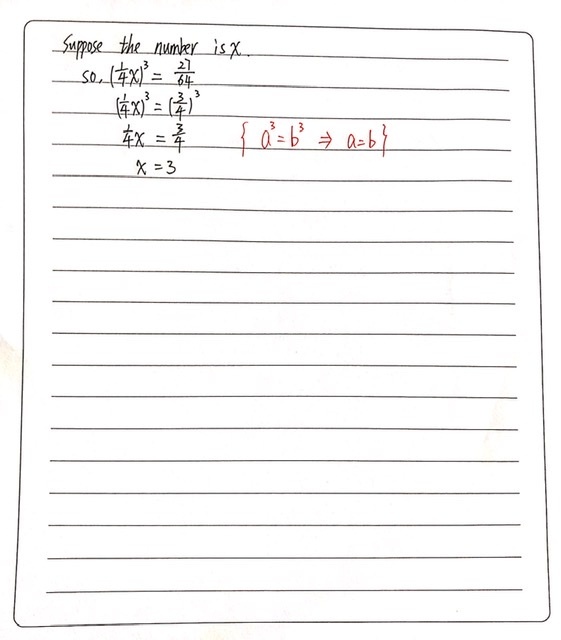 Suppose the number is x.
so, (1/4 x)³ = 27/64
(1/4 x)³ = (3/4)³
1/4 x = 3/4 { a³ = b³ ⇒ a = b }
x = 3